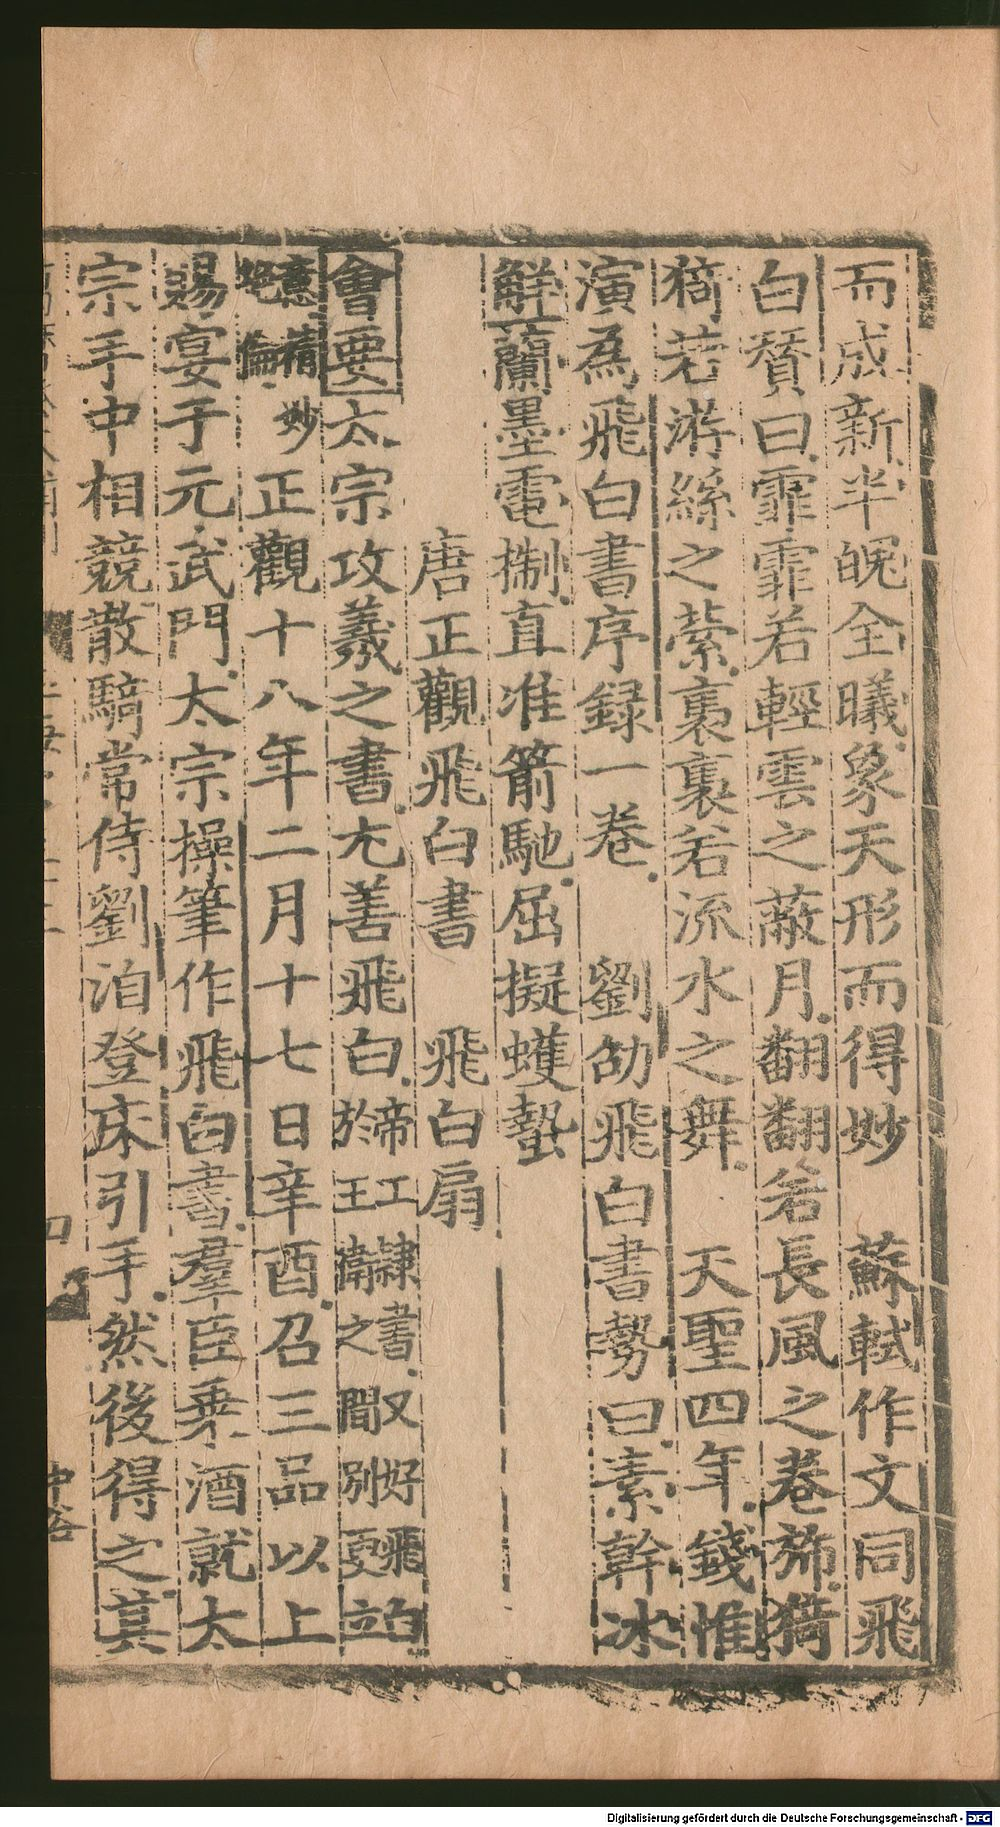 而成新半魄全曦象天形而得妙　蘇軾作文同飛
白贊曰霏霏若輕雲之蔽月翻翻若長風之卷斾猗
猗若游絲之縈裹裹若流水之舞　天聖四年錢惟
演為飛白書序録一卷　劉劭飛白書勢曰素幹冰
鮮蘭墨電掣直准箭馳屈擬蠖蟄
唐正觀飛白書　飛白扇
會要太宗攻羲之書尤善飛白帝工隸書又好飛白於王衛之間別更立
意精妙絕倫正觀十八年二月十七日辛酉召三品以上
賜宴于元武門太宗操筆作飛白書羣臣乗酒就太
宗手中相競散騎常侍劉洎登床引手然後得之其
Digitalisierung gefördert durch die Deutsche Forschungsgemeinschaft - DFG